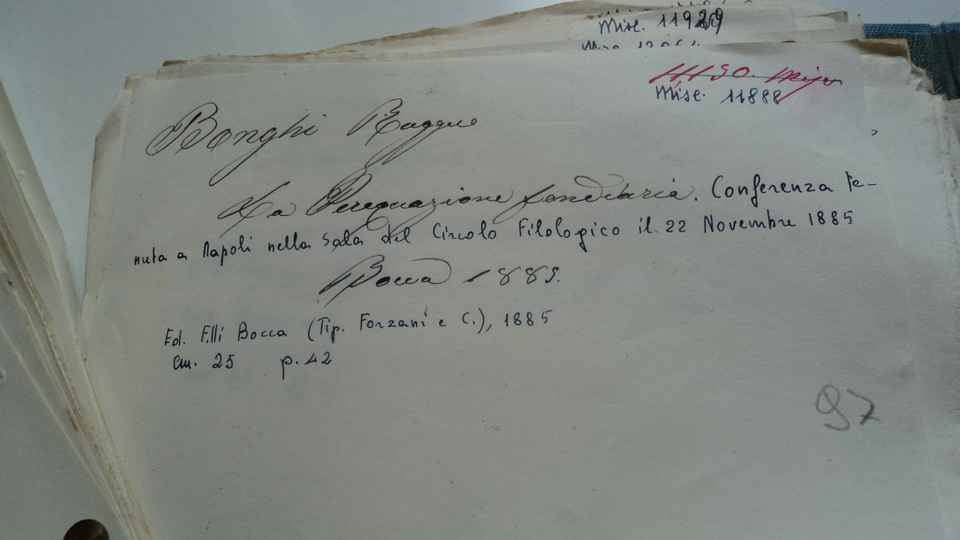 Misc. 11929
Misc.
Misc. 11888
Bonghi Ruggero
La Perequazione fondiaria. Conferenza te-
nuta a Napoli nella Sala del Circolo Filologico il 22 Novembre 1885
Bocca 1885.
Ed. F.lli Bocca (Tip. Forzani e C.), 1885
cm. 25 p. 42
97